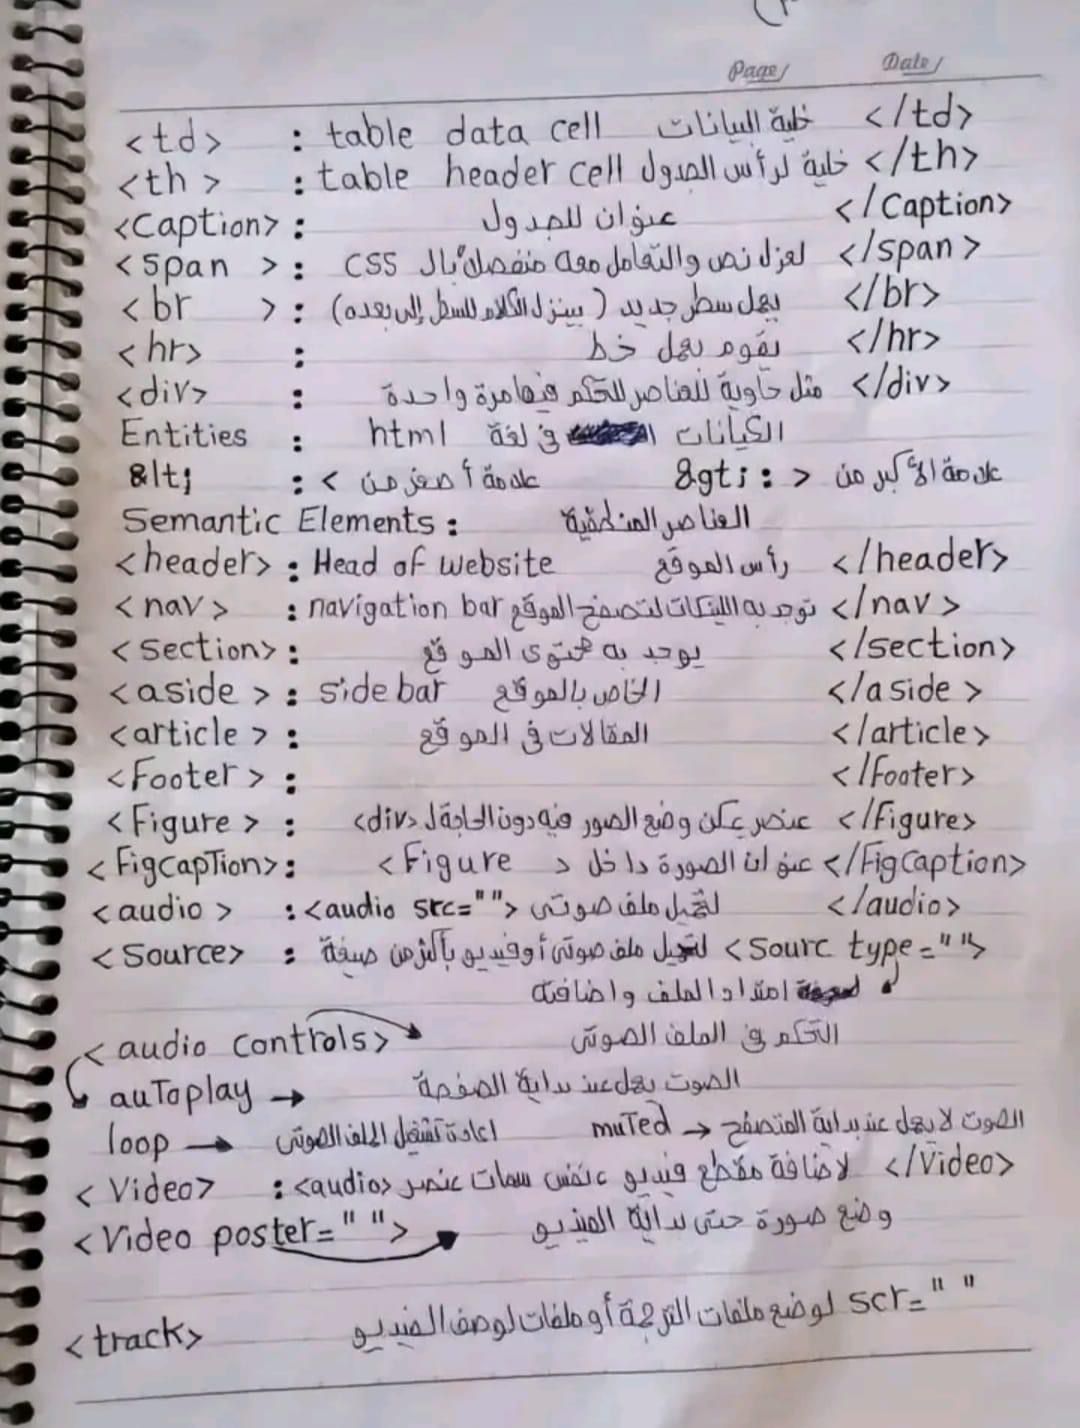 Page/ Date/
<td> : table data cell خلية البيانات </td>
<th> : table header cell خلية لرأس الجدول </th>
<Caption> : عنوان للجدول </Caption>
<span> : لعزل نص والتعامل معه منفصلاً بال CSS </span>
<br> : يعمل سطر جديد (بينزل الكلام للسطر إلى بعده) </br>
<hr> : يقوم بعمل خط </hr>
<div> : مثل حاوية للعناصر للتحكم فيها مرة واحدة </div>
Entities : الكيانات في لغة html
&lt; : < علامة أصغر من &gt; : > علامة الأكبر من
Semantic Elements : العناصر المنطقية
<header> : Head of website رأس الموقع </header>
<nav> : navigation bar توجد به اللينكات لتصفح الموقع </nav>
<section> : يوجد به محتوى الموقع </section>
<aside> : side bar الخاص بالموقع </aside>
<article> : المقالات في الموقع </article>
<Footer> : </Footer>
<Figure> : عنصر يمكن وضع الصور فيه دون الحاجة ل <div> </Figure>
<FigcapTion> : عنوان الصورة داخل < Figure > </Figcaption>
<audio> : <audio src=" "> لتحميل ملف صوتى </audio>
<Source> : لتحميل ملف صوتى أو فيديو بأكثر من صيغة <Sourc type=" ">
امتداد الملف واضافته
<audio controls> التحكم في الملف الصوتى
auToplay → الصوت يعمل عند بداية الصفحة
loop → اعادة تشغيل الملف الصوتى muTed → الصوت لا يعمل عند بداية المتصفح
<Video> : لاضافة مقطع فيديو بنفس سمات عنصر <audio> </Video>
<Video poster=" "> وضع صورة حتى بداية الفيديو
<track> لوضع ملفات الترجمة أو ملفات لوصف الفيديو scr=" "